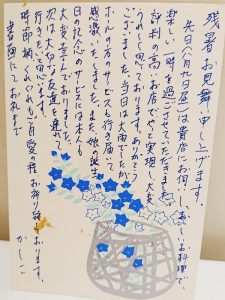 残暑お見舞い申し上げます。
先日(八月九日(金))は貴店にお伺いし、おいしいお料理で、
楽しい一時を過ごさせていただきました。
評判の高いお店がやっと実現し大変
うれしく思っております。ありがとう
ございました。当日は大雨でしたが
ホールの方のサービスも行き届いて
感激いたしました。また、娘の誕生
日の記念のサービスには本人も
大変喜んでおりました。
次は大切な友達を連れて
行きたいと思います。
時節柄くれぐれもご自愛の程お祈り致しております。
書面にてお礼まで
かしこ